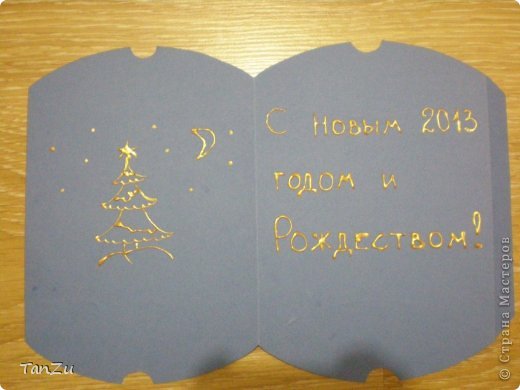 С Новым 2013
годом и
Рождеством!
TanZu
© Страна Мастеров